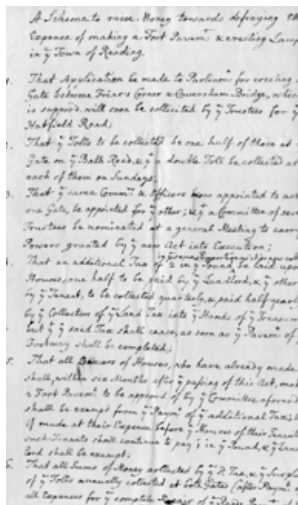 A Scheme to raise Money towards defraying the
Expence of making a Foot Pavemt & erecting Lamp
in ye Town of Reading.
1. That Application be made to Parliamt for erecting
Gate between Friars Corner & Caversham Bridge, wh
is suppos'd will soon be collected by ye Trustees for ye
Hatfield Road;
2. That ye Tolls to be collected be one half of those at
Gate on ye Bath Road, & ye a double Toll be collected at
each of them on Sundays;
3. That ye same Commrs & Officers appointed to act
one Gate, be appointed for ye other; & ye a Committee of
Trustees be nominated at a general Meeting to carry
Powers granted by ye new Act into Execution;
4. That an additional Tax of in ye Pound be laid upon
Houses, one half to be paid by ye Landlord, & ye other
by ye Tenant, to be collected quarterly, & paid half yearly
by ye Collectors of ye Land Tax into ye Hands of ye Treasurer
but ye ye said Tax shall cease, as soon as ye Pavemt of
Footway shall be compleated;
5. That all Owners of Houses, who have already made
shall, within six Months after ye passing of this Act, make
a Foot Pavemt to be approv'd of by ye Committee aforesd
shall be exempt from ye Paymt of ye additional Tax;
if made at their Expence before ye Houses of their Tenants
such Tenants shall continue to pay in ye Pound, & ye Land
lord shall be exempt;
6. That all Sums of Money collected by ye Tax, & ye Surplus
of ye Tolls annually collected at both Gates (after Paymt
all Expences for ye complete Repair of